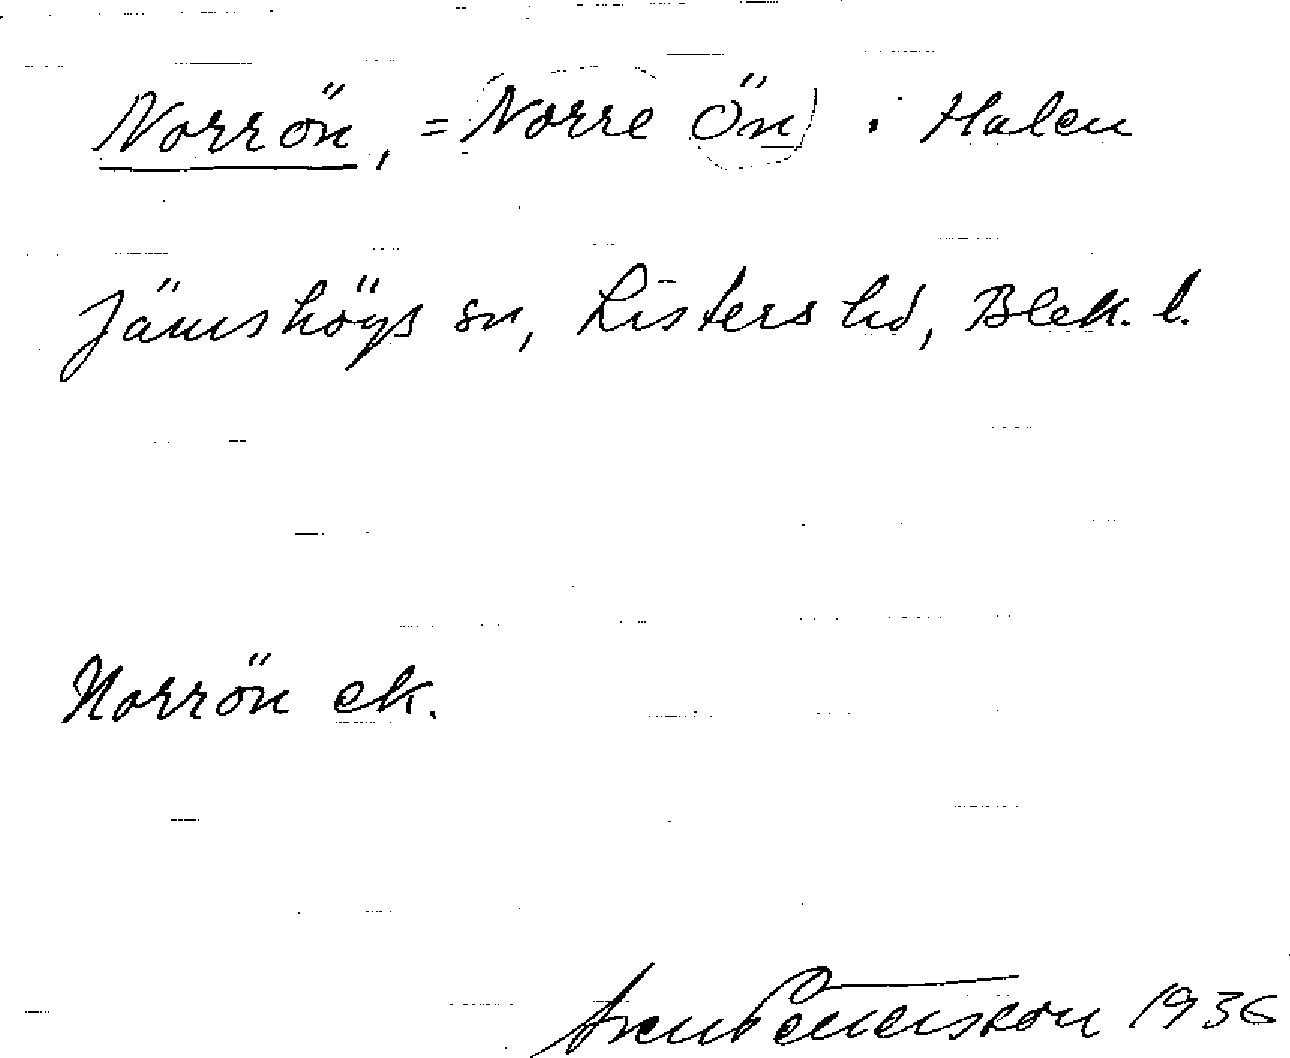 Norrön, = Norre Ön) i Halen
Jämshögs sn, Listers hd, Blek. l.
Norrön ek.
Pettersson 1936